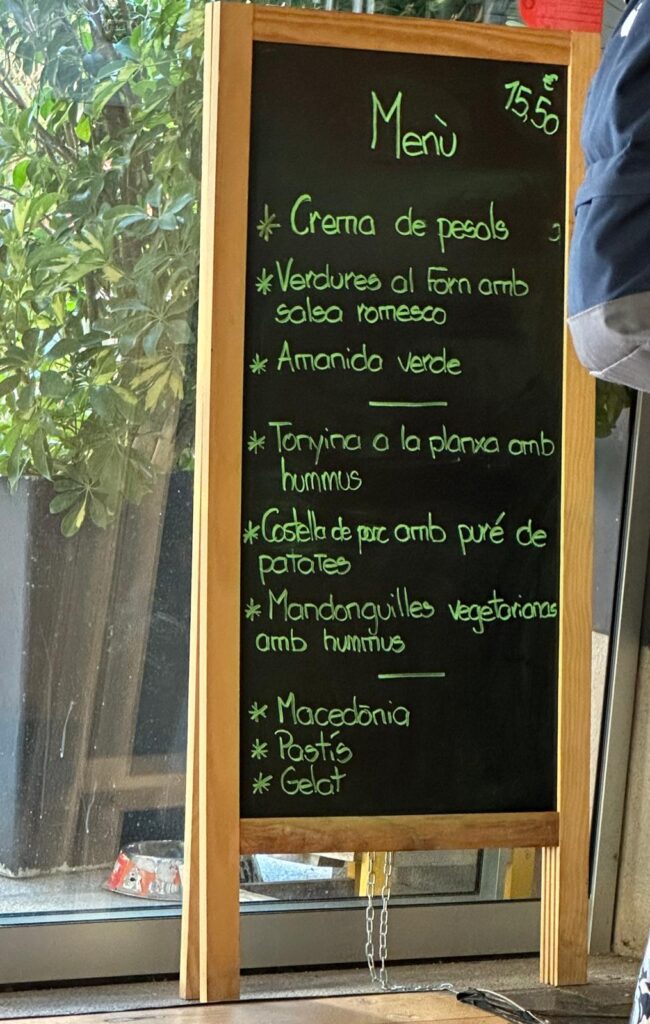 15,50 €
Menù
* Crema de pesols
* Verdures al Forn amb
salsa romesco
* Amanida verde
* Tonyina a la planxa amb
hummus
* Costella de porc amb puré de
patates
* Mandonguilles vegetarianas
amb hummus
* Macedōnia
* Pastís
* Gelat